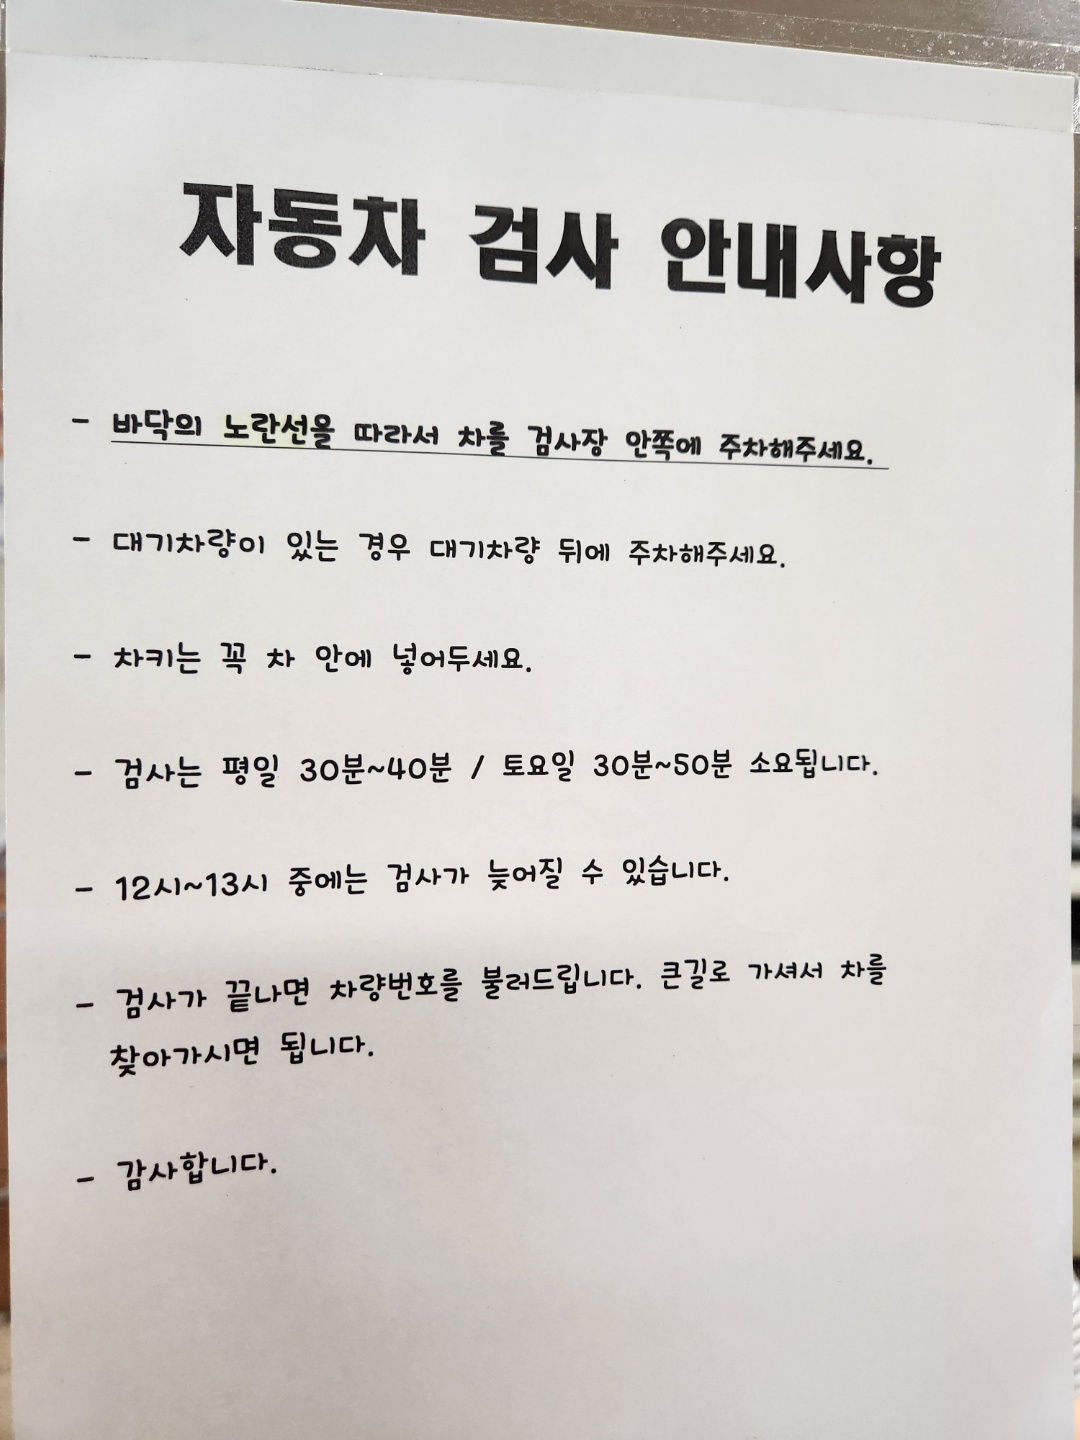 자동차 검사 안내사항
- 바닥의 노란선을 따라서 차를 검사장 안쪽에 주차해주세요.
- 대기차량이 있는 경우 대기차량 뒤에 주차해주세요.
- 차키는 꼭 차 안에 넣어두세요.
- 검사는 평일 30분~40분 / 토요일 30분~50분 소요됩니다.
- 12시~13시 중에는 검사가 늦어질 수 있습니다.
- 검사가 끝나면 차량번호를 불러드립니다. 큰길로 가셔서 차를
찾아가시면 됩니다.
- 감사합니다.